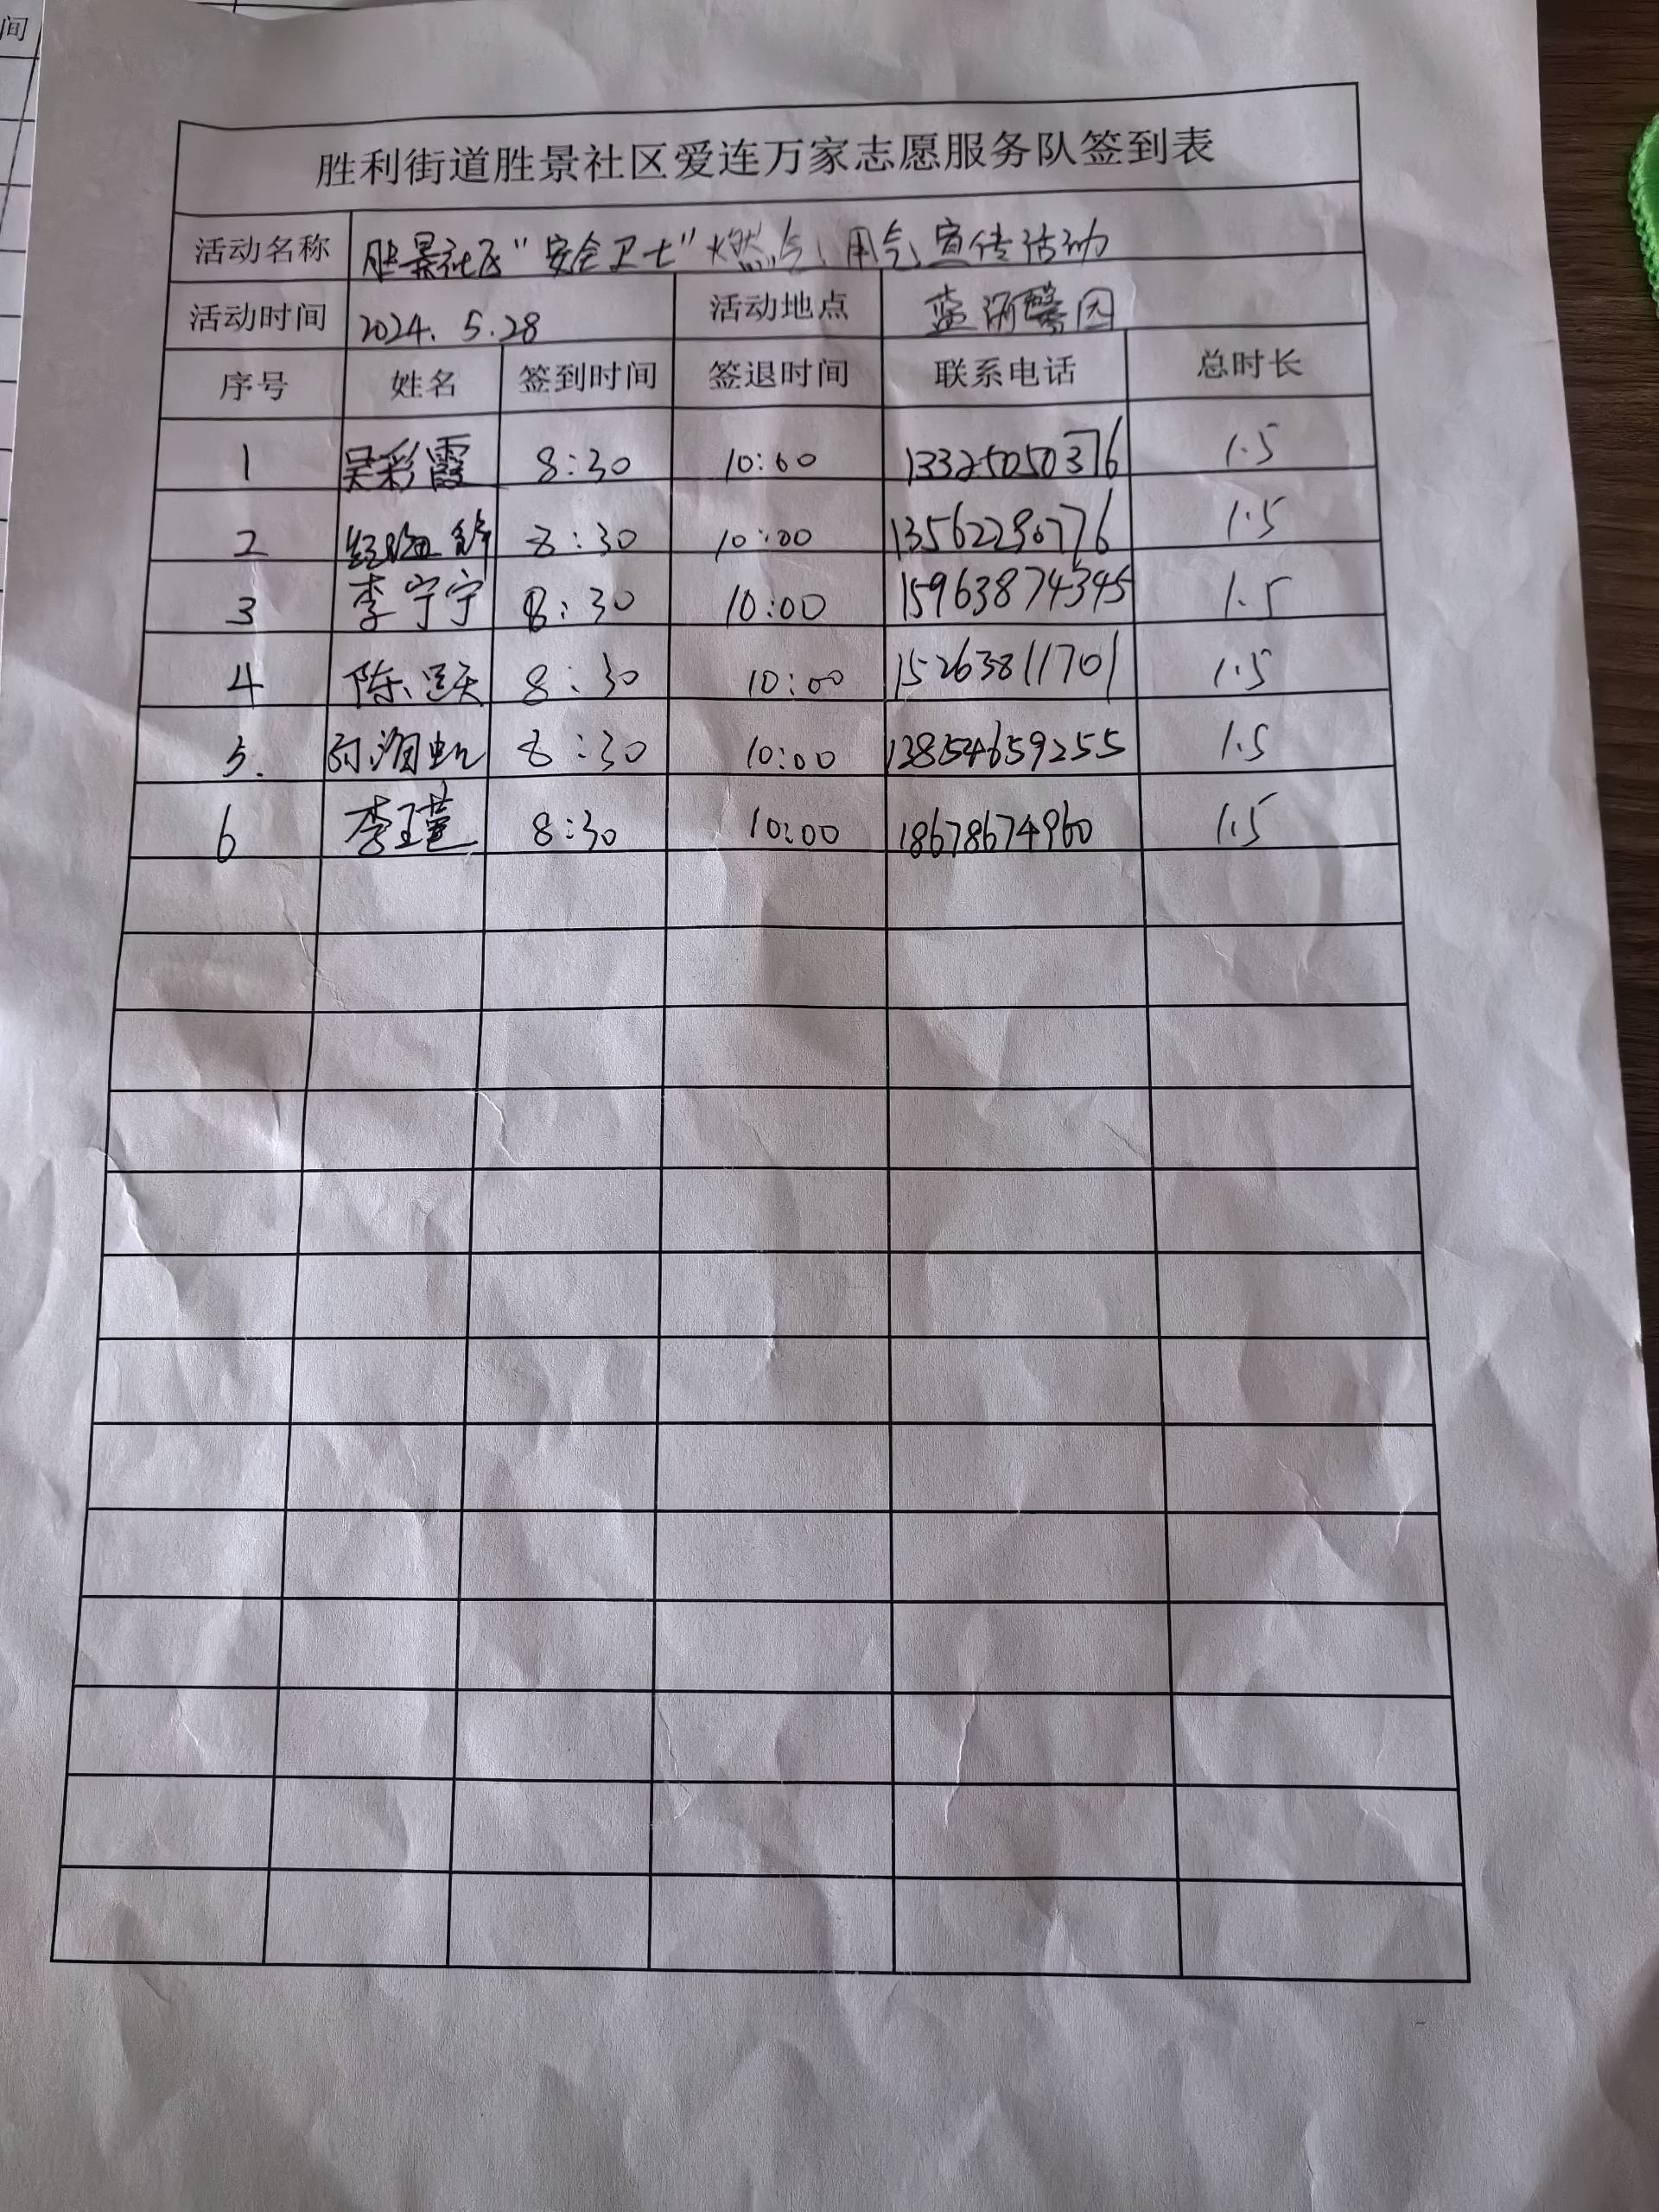 间
胜利街道胜景社区爱连万家志愿服务队签到表
活动名称 胜景社区"安全卫士"燃气、用气宣传活动
活动时间 2024.5.28 活动地点
序号 姓名 签到时间 签退时间 联系电话 总时长
1 吴彩霞 8:30 10:00 13325050376 1.5
2 8:30 10:00 13562290776 1.5
3 李宁宁 8:30 10:00 15963874345 1.5
4 陈 8:30 10:00 15263811701 1.5
5. 8:30 10:00 13854659255 1.5
6 李瑾 8:30 10:00 18678674960 1.5